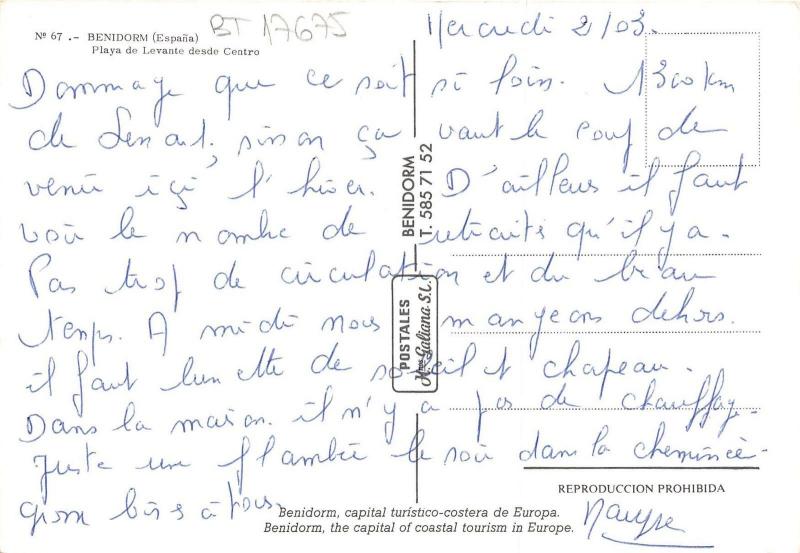 BT 17675
Nº 67 .- BENIDORM (España)
Playa de Levante desde Centro
Mercredi 2/03.
Dommage que ce soit si loin. 1300 km
de Senart, sinon ça vaut le coup de
venir içi l'hiver. D'ailleurs il faut
voir le nombre de retraités qu'il y a.
Pas trop de circulation et du beau
temps. A midi nous mangeons dehors.
il faut lunette de soleil et chapeau.
Dans la maison il n'y a pas de chauffage.
Juste une flambée le soir dans la cheminée.
gros bises à tous.
BENIDORM
T. 585 71 52
POSTALES
Hnos Galiana S.L.
REPRODUCCION PROHIBIDA
Benidorm, capital turístico-costera de Europa.
Benidorm, the capital of coastal tourism in Europe.